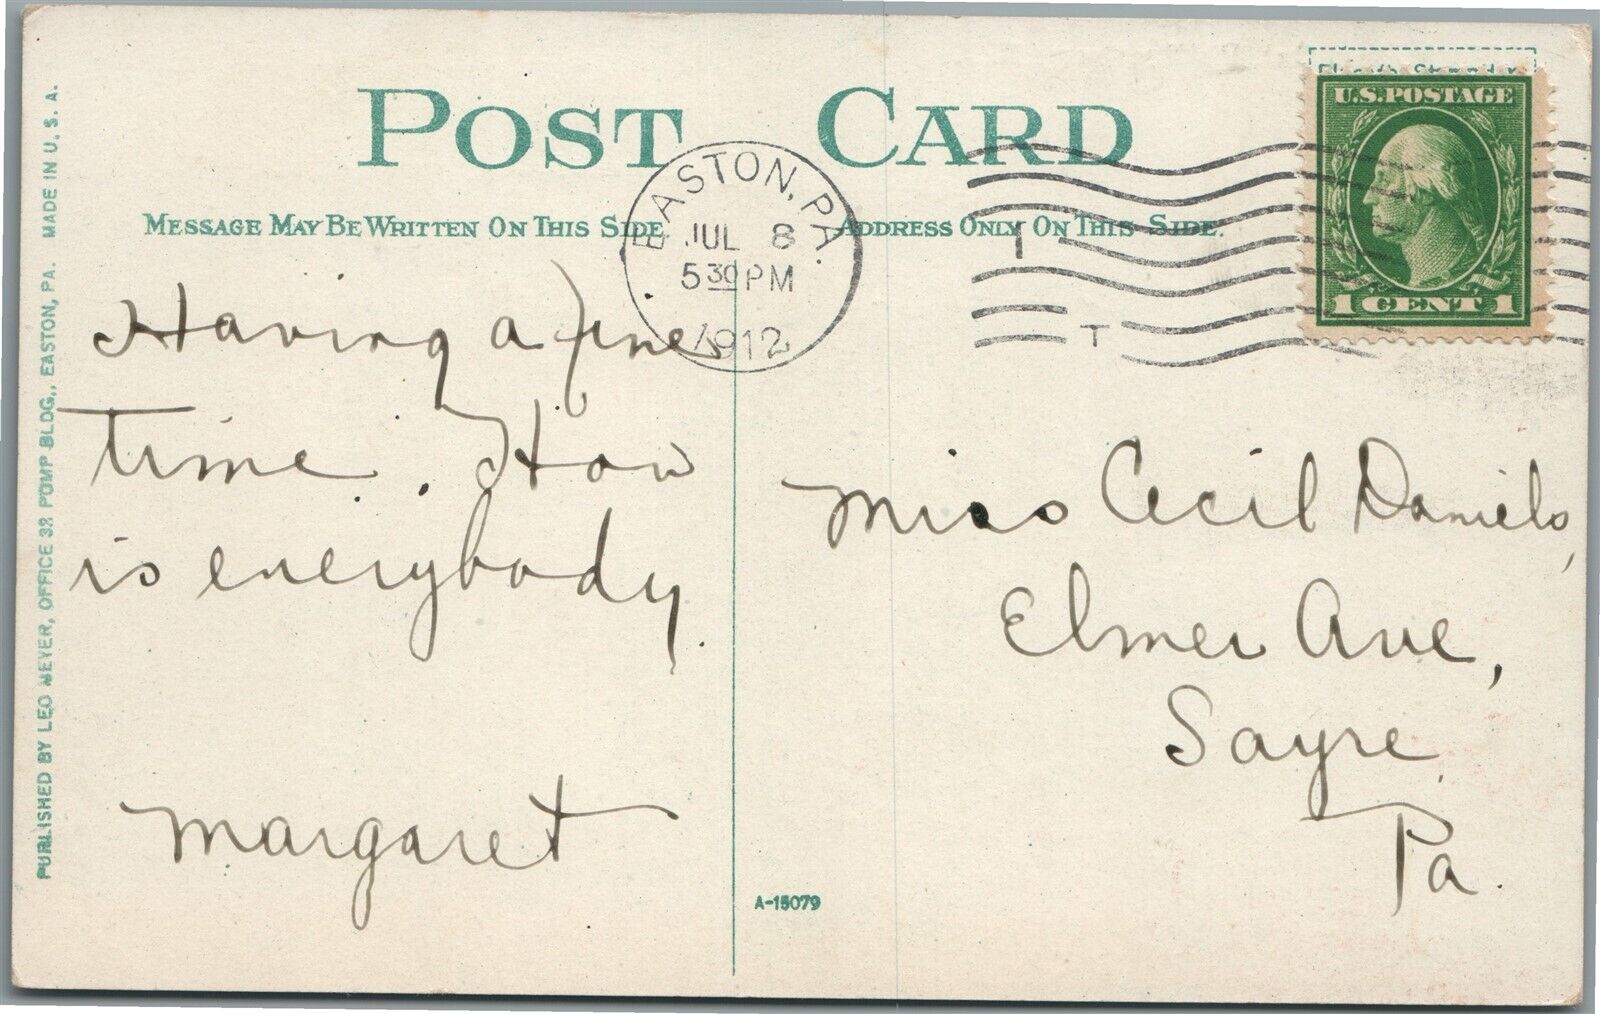 POST CARD
MESSAGE MAY BE WRITTEN ON THIS SIDE.
ADDRESS ONLY ON THIS SIDE.
EASTON, PA.
JUL 8
5 30 PM
1912
T
U.S. POSTAGE
1 CENT 1
Having a fine
time. How
is everybody.
Margaret
Miss Cecil Daniels,
Elmer Ave,
Sayre
Pa.
A-15079
PUBLISHED BY LEO MEYER, OFFICE 32 POMP BLDG., EASTON, PA. MADE IN U. S. A.